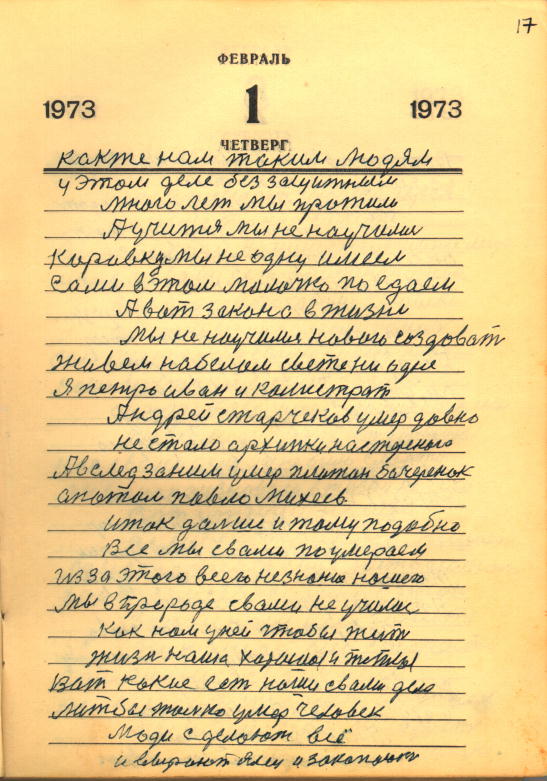 17
ФЕВРАЛЬ
1973 1 1973
ЧЕТВЕРГ
какже нам таким людям
у этом деле без защитным
много лет мы прожили
А учится мы не научили
каровку мы не одну имеем
сами в этом молочко поедаем
А вот закона в жизни
мы не научимя нового создоват
живем на белом свете ни одне
Я петро иван и калистрат
Андрей старчеков умер довно
не стало архипки
А вслед за ним умер платан бочеренок
апотом павло михеев
итак далше и тому подобно
Все мы свами поумераем
из за этого всего незнания нашего
мы в природе свами не училис
как нам у ней чтобы жит
жизн наша хороша и теплы
Вот какие ест наши свами дела
литбы толко умер человек
люди сделают всё
и выроют яму и закопают